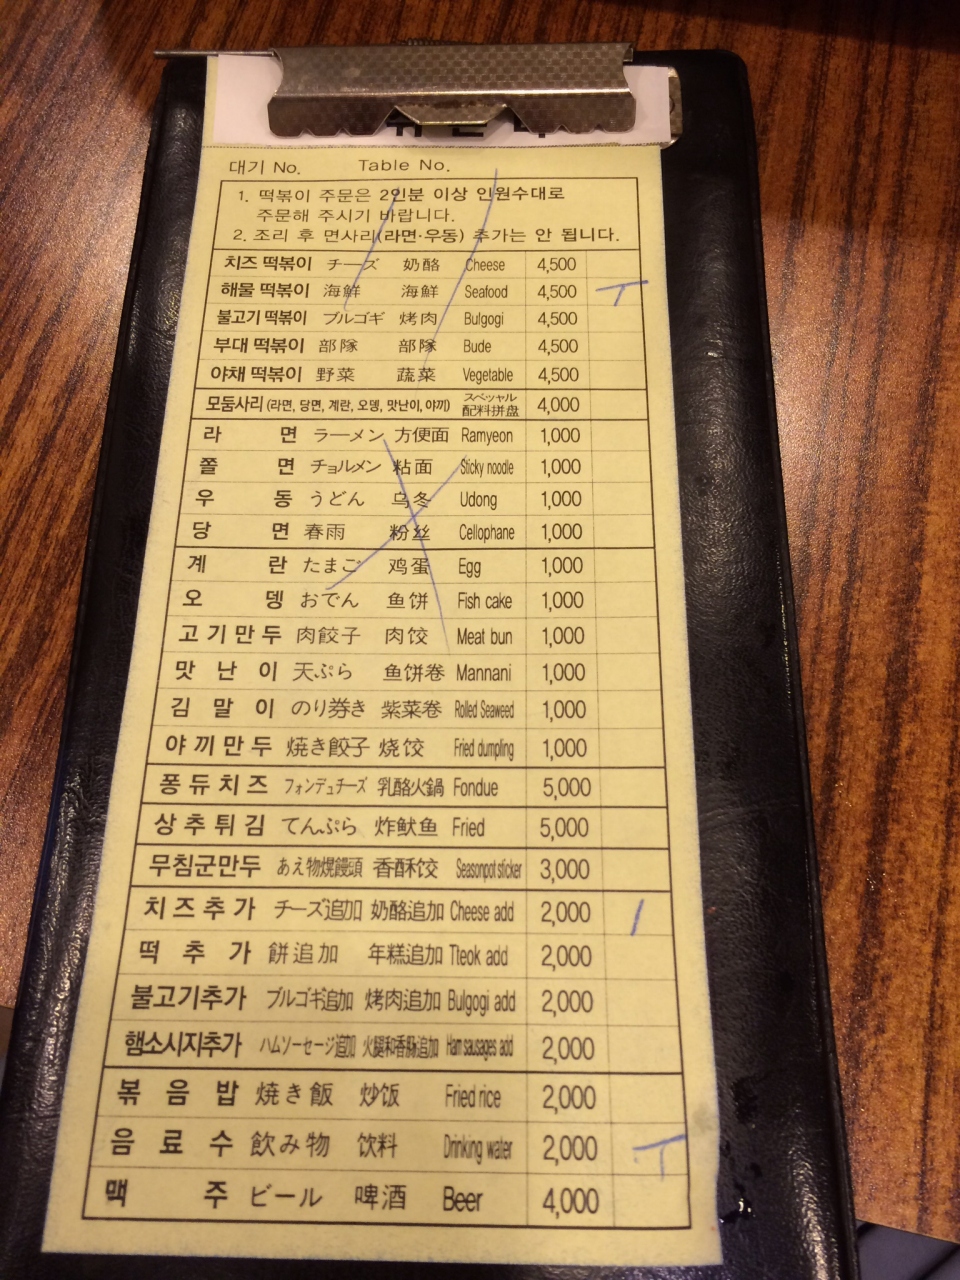 대기 No. Table No.
1. 떡볶이 주문은 2인분 이상 인원수대로
주문해 주시기 바랍니다.
2. 조리 후 면사리(라면·우동) 추가는 안 됩니다.
치즈 떡볶이 チーズ 奶酪 Cheese 4,500
해물 떡볶이 海鮮 海鮮 Seafood 4,500 T
불고기 떡볶이 ブルゴギ 烤肉 Bulgogi 4,500
부대 떡볶이 部隊 部隊 Bude 4,500
야채 떡볶이 野菜 蔬菜 Vegetable 4,500
모둠사리 (라면, 당면, 계란, 오뎅, 맛난이, 야끼) スペッシャル 配料拼盘 4,000
라면 ラーメン 方便面 Ramyeon 1,000
쫄면 チョルメン 粘面 Sticky noodle 1,000
우동 うどん 乌冬 Udong 1,000
당면 春雨 粉丝 Cellophane 1,000
계란 たまご 鸡蛋 Egg 1,000
오뎅 おでん 鱼饼 Fish cake 1,000
고기만두 肉餃子 肉饺 Meat bun 1,000
맛난이 天ぷら 鱼饼卷 Mannani 1,000
김말이 のり券き 紫菜卷 Rolled Seaweed 1,000
야끼만두 焼き餃子 烧饺 Fried dumpling 1,000
퐁듀치즈 フォンデュチーズ 乳酪火鍋 Fondue 5,000
상추튀김 てんぷら 炸鱿鱼 Fried 5,000
무침군만두 あえ物焼饅頭 香酥饺 Seasonpot sticker 3,000
치즈추가 チーズ追加 奶酪追加 Cheese add 2,000 /
떡추가 餅追加 年糕追加 Tteok add 2,000
불고기추가 ブルゴギ追加 烤肉追加 Bulgogi add 2,000
햄소시지추가 ハムソーセージ追加 火腿和香肠追加 Ham sausages add 2,000
볶음밥 焼き飯 炒饭 Fried rice 2,000
음료수 飲み物 饮料 Drinking water 2,000 T
맥주 ビール 啤酒 Beer 4,000